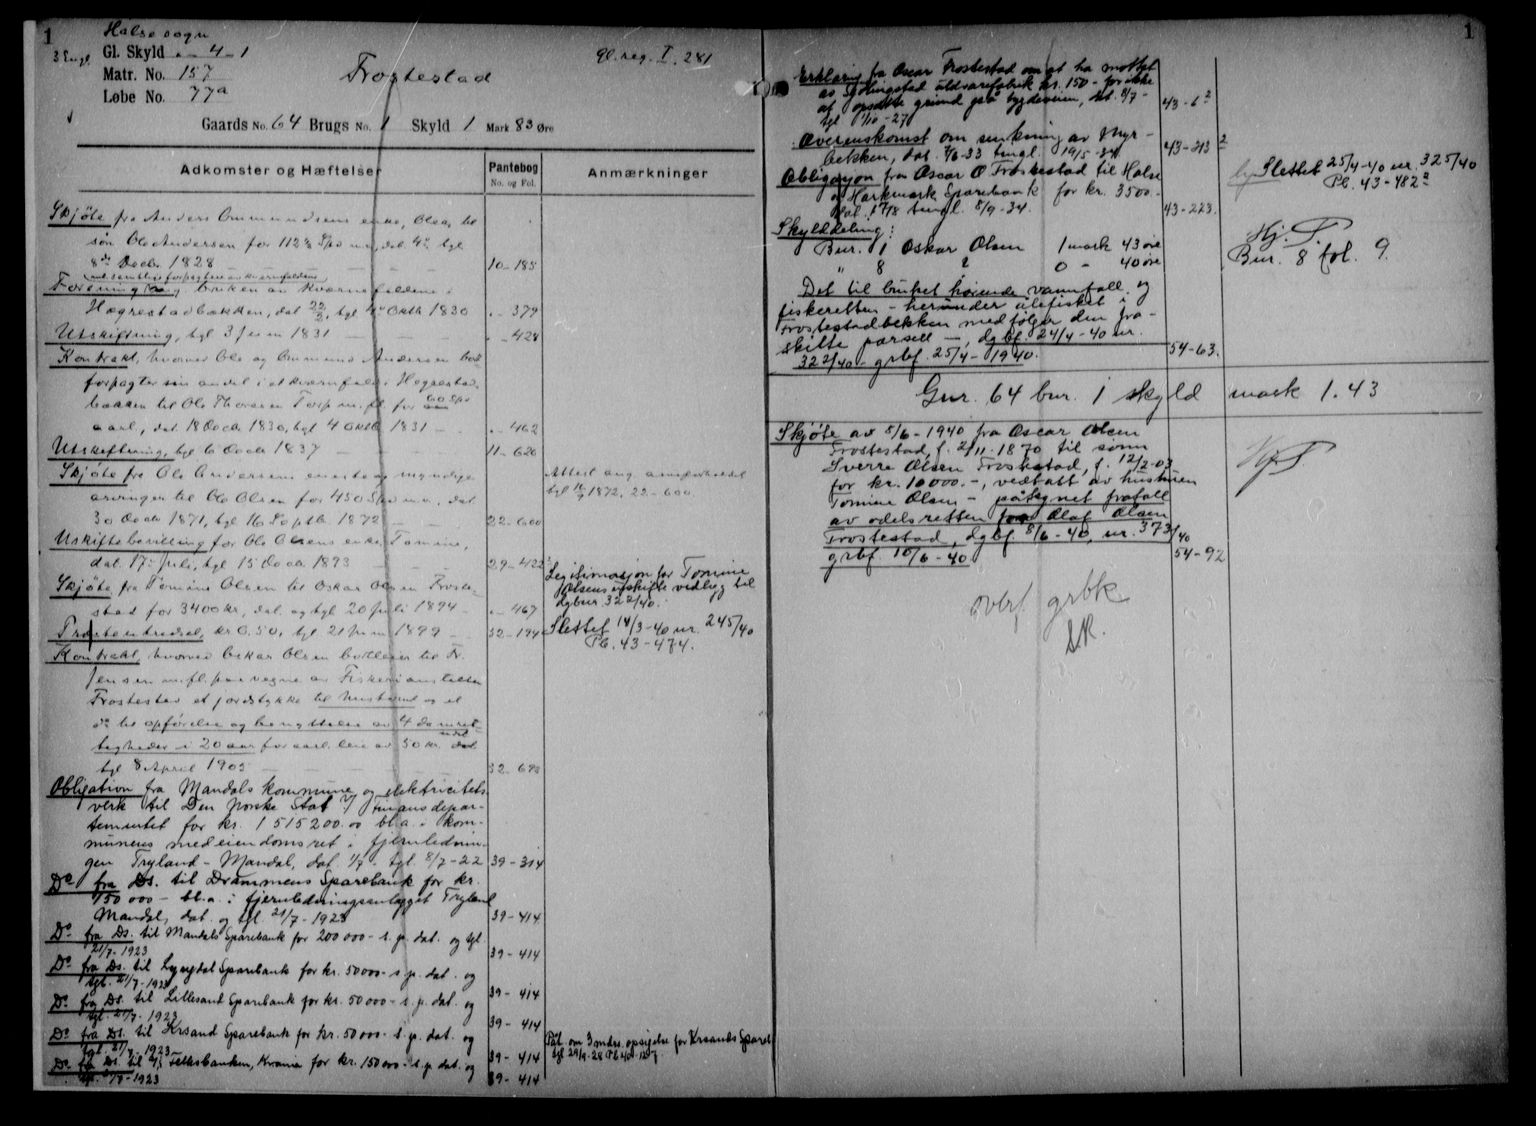 1
Halse sogn
3 Engl. Gl. Skyld . - 4 - 1
Matr. No. 157
Løbe No. 77a
Frostestad
Gl. reg. I. 281
Gaards No. 64 Brugs No. 1 Skyld 1 Mark 83 Øre
Adkomster og Hæftelser
Pantebog
No. og Fol.
Anmærkninger
Skjöte fra Anders Ommundsens enke, Olea, til
søn Ole Andersen for 112 Spd m.m., dat. 4 tgl
8de Decbr 1828 10-185
Forening brugen av kværnfaldene i
Høgrestadbækken, dat , tgl 4 Oktb 1830 " - 379
Utskiftning, tgl 3 Juni 1831 " - 424
Kontrakt, hvorved Ole og Ommund Andersen bort
forpagter sin andel i et kværnfald i Høgrestad-
bækken til Ole Thorsen Torp m.fl. for 60 Spd
aarl., dat. 18 Decbr 1830, tgl 4 Oktb 1831 - " - 462
Utskiftning, tgl 6 Decbr 1837 11-620
Skjöte fra Ole Andersens enke og myndige
arvinger til Ole Olsen for 450 Spd m.m., dat
30 Decbr 1871, tgl 16 Septb. 1872 22-600
Attest ang.
tgl 1872. 22-600.
Uskiftebevilling for Ole Olsens enke Tomine,
dat. 17 Juli, tgl 15 Decbr 1893 29-422
Skjöte fra Tomine Olsen til Oskar Olsen Froste-
stad for 3400 kr, dat. og tgl 20 Juli 1894 - " - 467
Legitimasjon for Tomine
Olsens uskifte vedlegg til
dgbnr 322/40.
kr 0.50, tgl 21 Juni 1899 32-194
Slettet 14/3-40 nr. 245/40
Pb. 43-474.
Kontrakt, hvorved Oskar Olsen bortleier til Fr.
Jensen m.fl. paa vegne av Fiskerianstalten
Frostestad et jordstykke til hustomt og et
do til opførelse og benyttelse av 4 damret-
tigheder i 20 aar for aarl. leie av 50 kr. dat
tgl 8 April 1905 32-690
Obligation fra Mandals kommune og elektricitets-
verk til Den norske Stat v/ Finansdepar-
tementet for kr. 1515200.00 bl.a. i kom-
munens med eiendomsret i fjernlednin-
gen Tryland - Mandal, dat. 1/7 - tgl. 8/7-22 39-314
Do fra Ds. til Drammens Sparebank for kr.
150 000 - bl.a. i fjernledningsanlægget Tryland
Mandal, dat. og tgl. 21/7-1923 39-414
Do fra Ds. til Mandals Sparebank for 200 000 - s.p. dat. og tgl
21/7-1923 39-414
Do fra Ds. til Lyngdal Sparebank for kr. 50000 - s.p. dat. og
tgl. 21/7-1923 39-414
Do fra Ds. til Lillesand Sparebank for kr. 50 000 - s.p. dat. og
tgl. 21/7-1923 39-414
Do fra Ds. til Krsand Sparebank for kr. 50 000 - s.p. dat. og
tgl. 21/7 1923 39-414
Påt. om 3 mdrs. opsigelse for Krsands Spareb.
tgl 29/9-28 Pb 40-
Do fra Ds. til Fellesbanken, Krania for kr. 150 000 - s.p. dat. og
tgl. 21/7-1923 39-414
1
Erklæring fra Oscar Frostestad om at ha mottat
av Sjølingstad uldvarefabrik kr. 150 - for ikke
at opsætte grind på bygdeveien, dat. 8/7-
tgl 1/10-27 43-6
Overenskomst om senkning av Myr-
bekken, dat. 7/6-33 tingl. 19/5-34 43-213
Obligasjon fra Oscar O Frostestad til Halse
og Harkmark Sparebank for kr. 3500.-
dat. 17/8 tingl. 8/9-34. 43-223.
Slettet 25/4-40 nr. 325/40
Pb. 43-482
Skylddeling:
Bnr. 1 Oskar Olsen 1 mark 43 øre
" 8 " 0 - 40 øre
Hj. F.
Bnr. 8 fol. 9.
Det til bruket hørende vannfall og
fiskeretten herunder ålefisket i
Frostestadbekken medfølger den fra-
skilte parsell -, dgbf. 24/4-40 nr.
322/40 - grbf. 25/4-1940. 54-63.
Gnr. 64 bnr. 1 skyld mark 1.43
Skjöte av 5/6-1940 fra Oscar Olsen
Frostestad, f. 2/11-1870 til sønn
Sverre Olsen Frostestad, f. 12/2-03
for kr. 10000.-, vedtatt av hustruen
Tomine Olsen - påtegnet frafall
av odelsretten fra Olaf Olsen
Frostestad, dgbf. 8/6-40, nr. 373/40
grbf 10/6-40 54-92
Hj. F.
overf grbk
S.R.